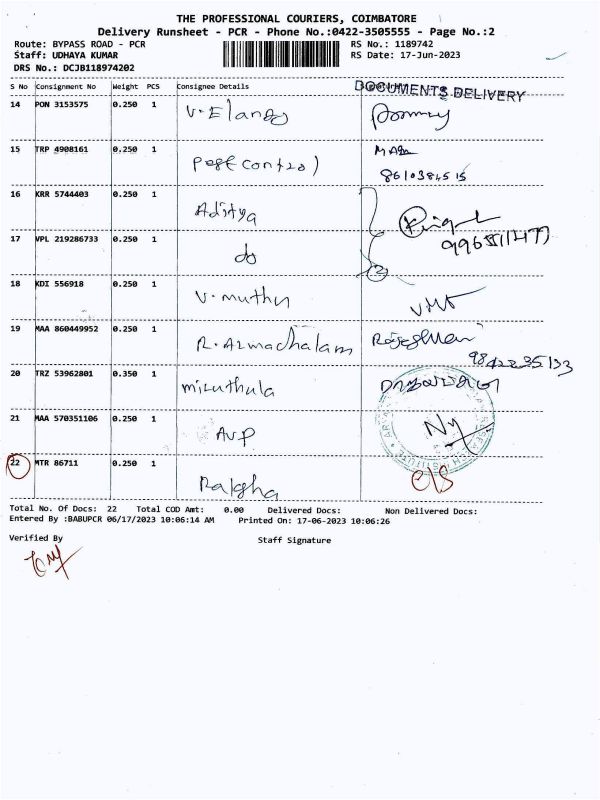 THE PROFESSIONAL COURIERS, COIMBATORE
Delivery Runsheet - PCR - Phone No.:0422-3505555 - Page No.:2
Route: BYPASS ROAD - PCR RS No.: 1189742
Staff: UDHAYA KUMAR RS Date: 17-Jun-2023
DRS No.: DCJB118974202
S No Consignment No Weight PCS Consignee Details DOCUMENTS DELIVERY
14 PON 3153575 0.250 1 V. Elango
15 TRP 4908161 0.250 1 Pest control
8610384515
16 KRR 5744403 0.250 1 Aditya
17 VPL 219286733 0.250 1 do
18 KDI 556918 0.250 1 V. muthu
19 MAA 860449952 0.250 1 R. Arunachalam
20 TRZ 53962801 0.350 1 Miruthula
21 MAA 570351106 0.250 1 AVP
22 MTR 86711 0.250 1 Raksha
Total No. Of Docs: 22 Total COD Amt: 0.00 Delivered Docs: Non Delivered Docs:
Entered By :BABUPCR 06/17/2023 10:06:14 AM Printed On: 17-06-2023 10:06:26
Verified By Staff Signature